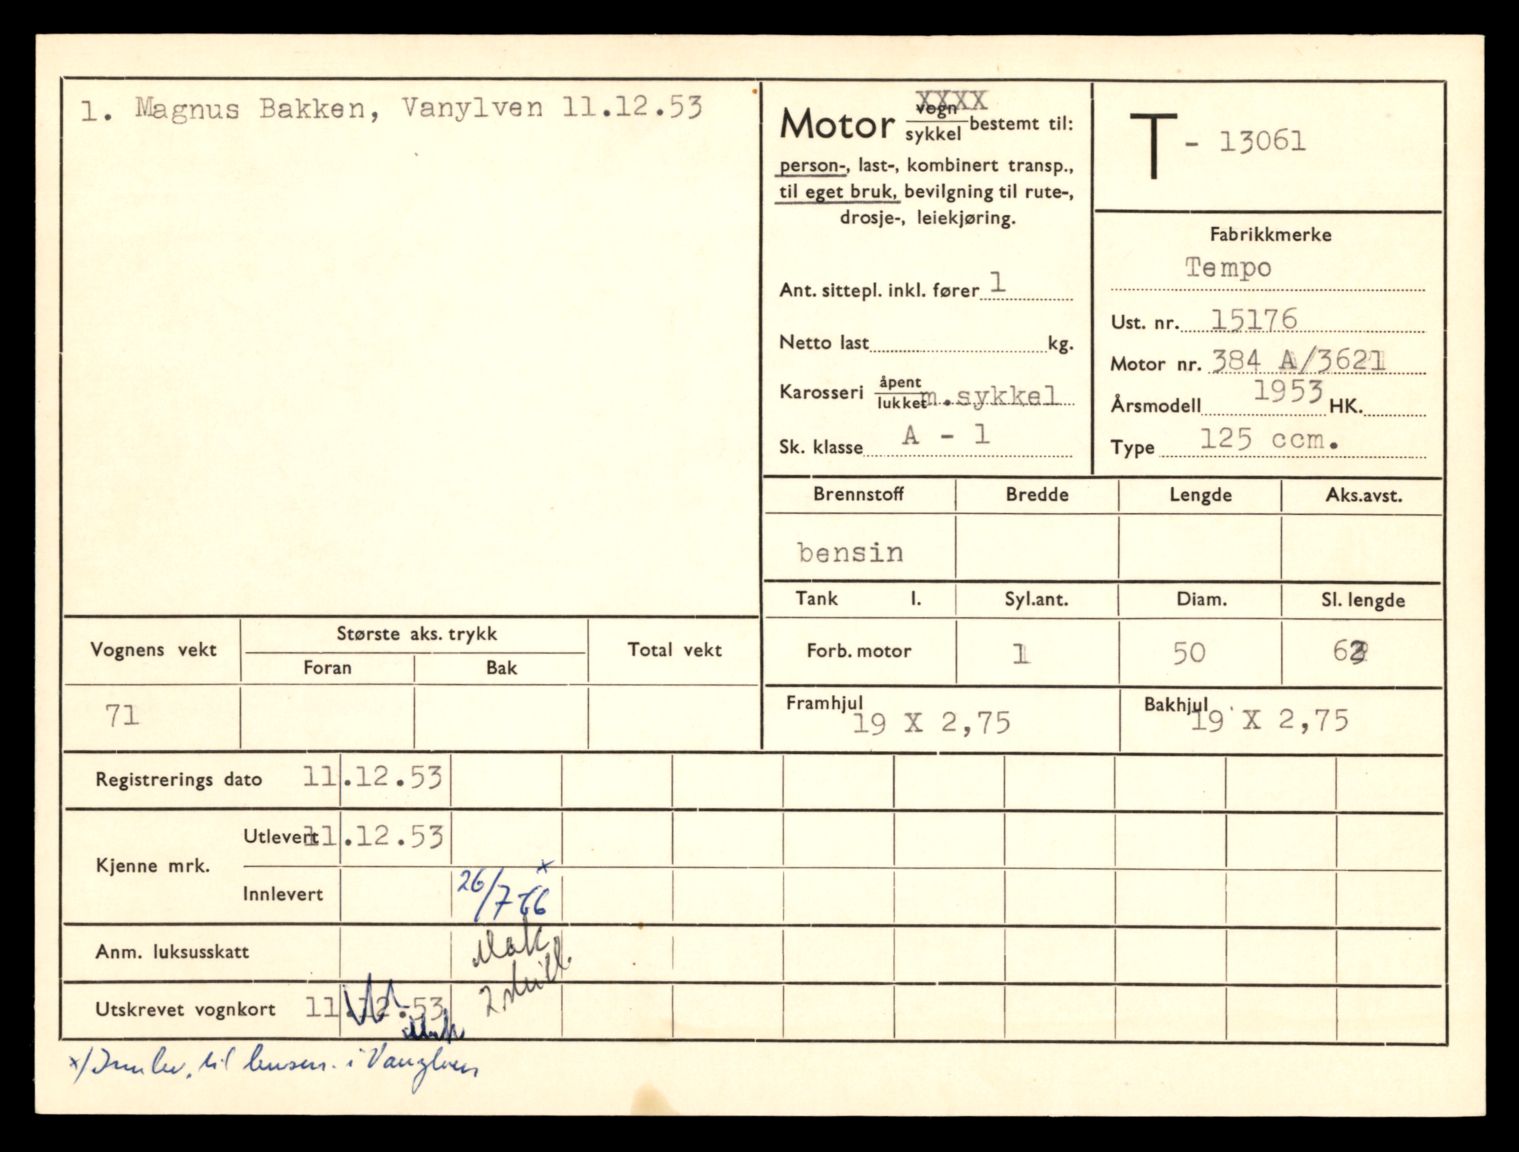 1. Magnus Bakken, Vanylven 11.12.53
Motor vogn XXXX
sykkel bestemt til:
person-, last-, kombinert transp.,
til eget bruk, bevilgning til rute-,
drosje-, leiekjøring.
Ant. sittepl. inkl. fører 1
Netto last kg.
Karosseri åpent
lukket m.sykkel
Sk. klasse A - 1
T - 13061
Fabrikkmerke
Tempo
Ust. nr. 15176
Motor nr. 384 A/3621
Årsmodell 1953 HK.
Type 125 ccm.
Brennstoff Bredde Lengde Aks.avst.
bensin
Tank l. Syl.ant. Diam. Sl. lengde
Forb. motor 1 50 62
Framhjul 19 X 2,75 Bakhjul 19 X 2,75
Vognens vekt Største aks. trykk Total vekt
Foran Bak
71
Registrerings dato 11.12.53
Kjenne mrk. Utlevert 11.12.53
Innlevert 26/7 66 x
Anm. luksusskatt
2 skilt
Utskrevet vognkort 11.12.53
x/ Innlev. til lensm. i Vanylven